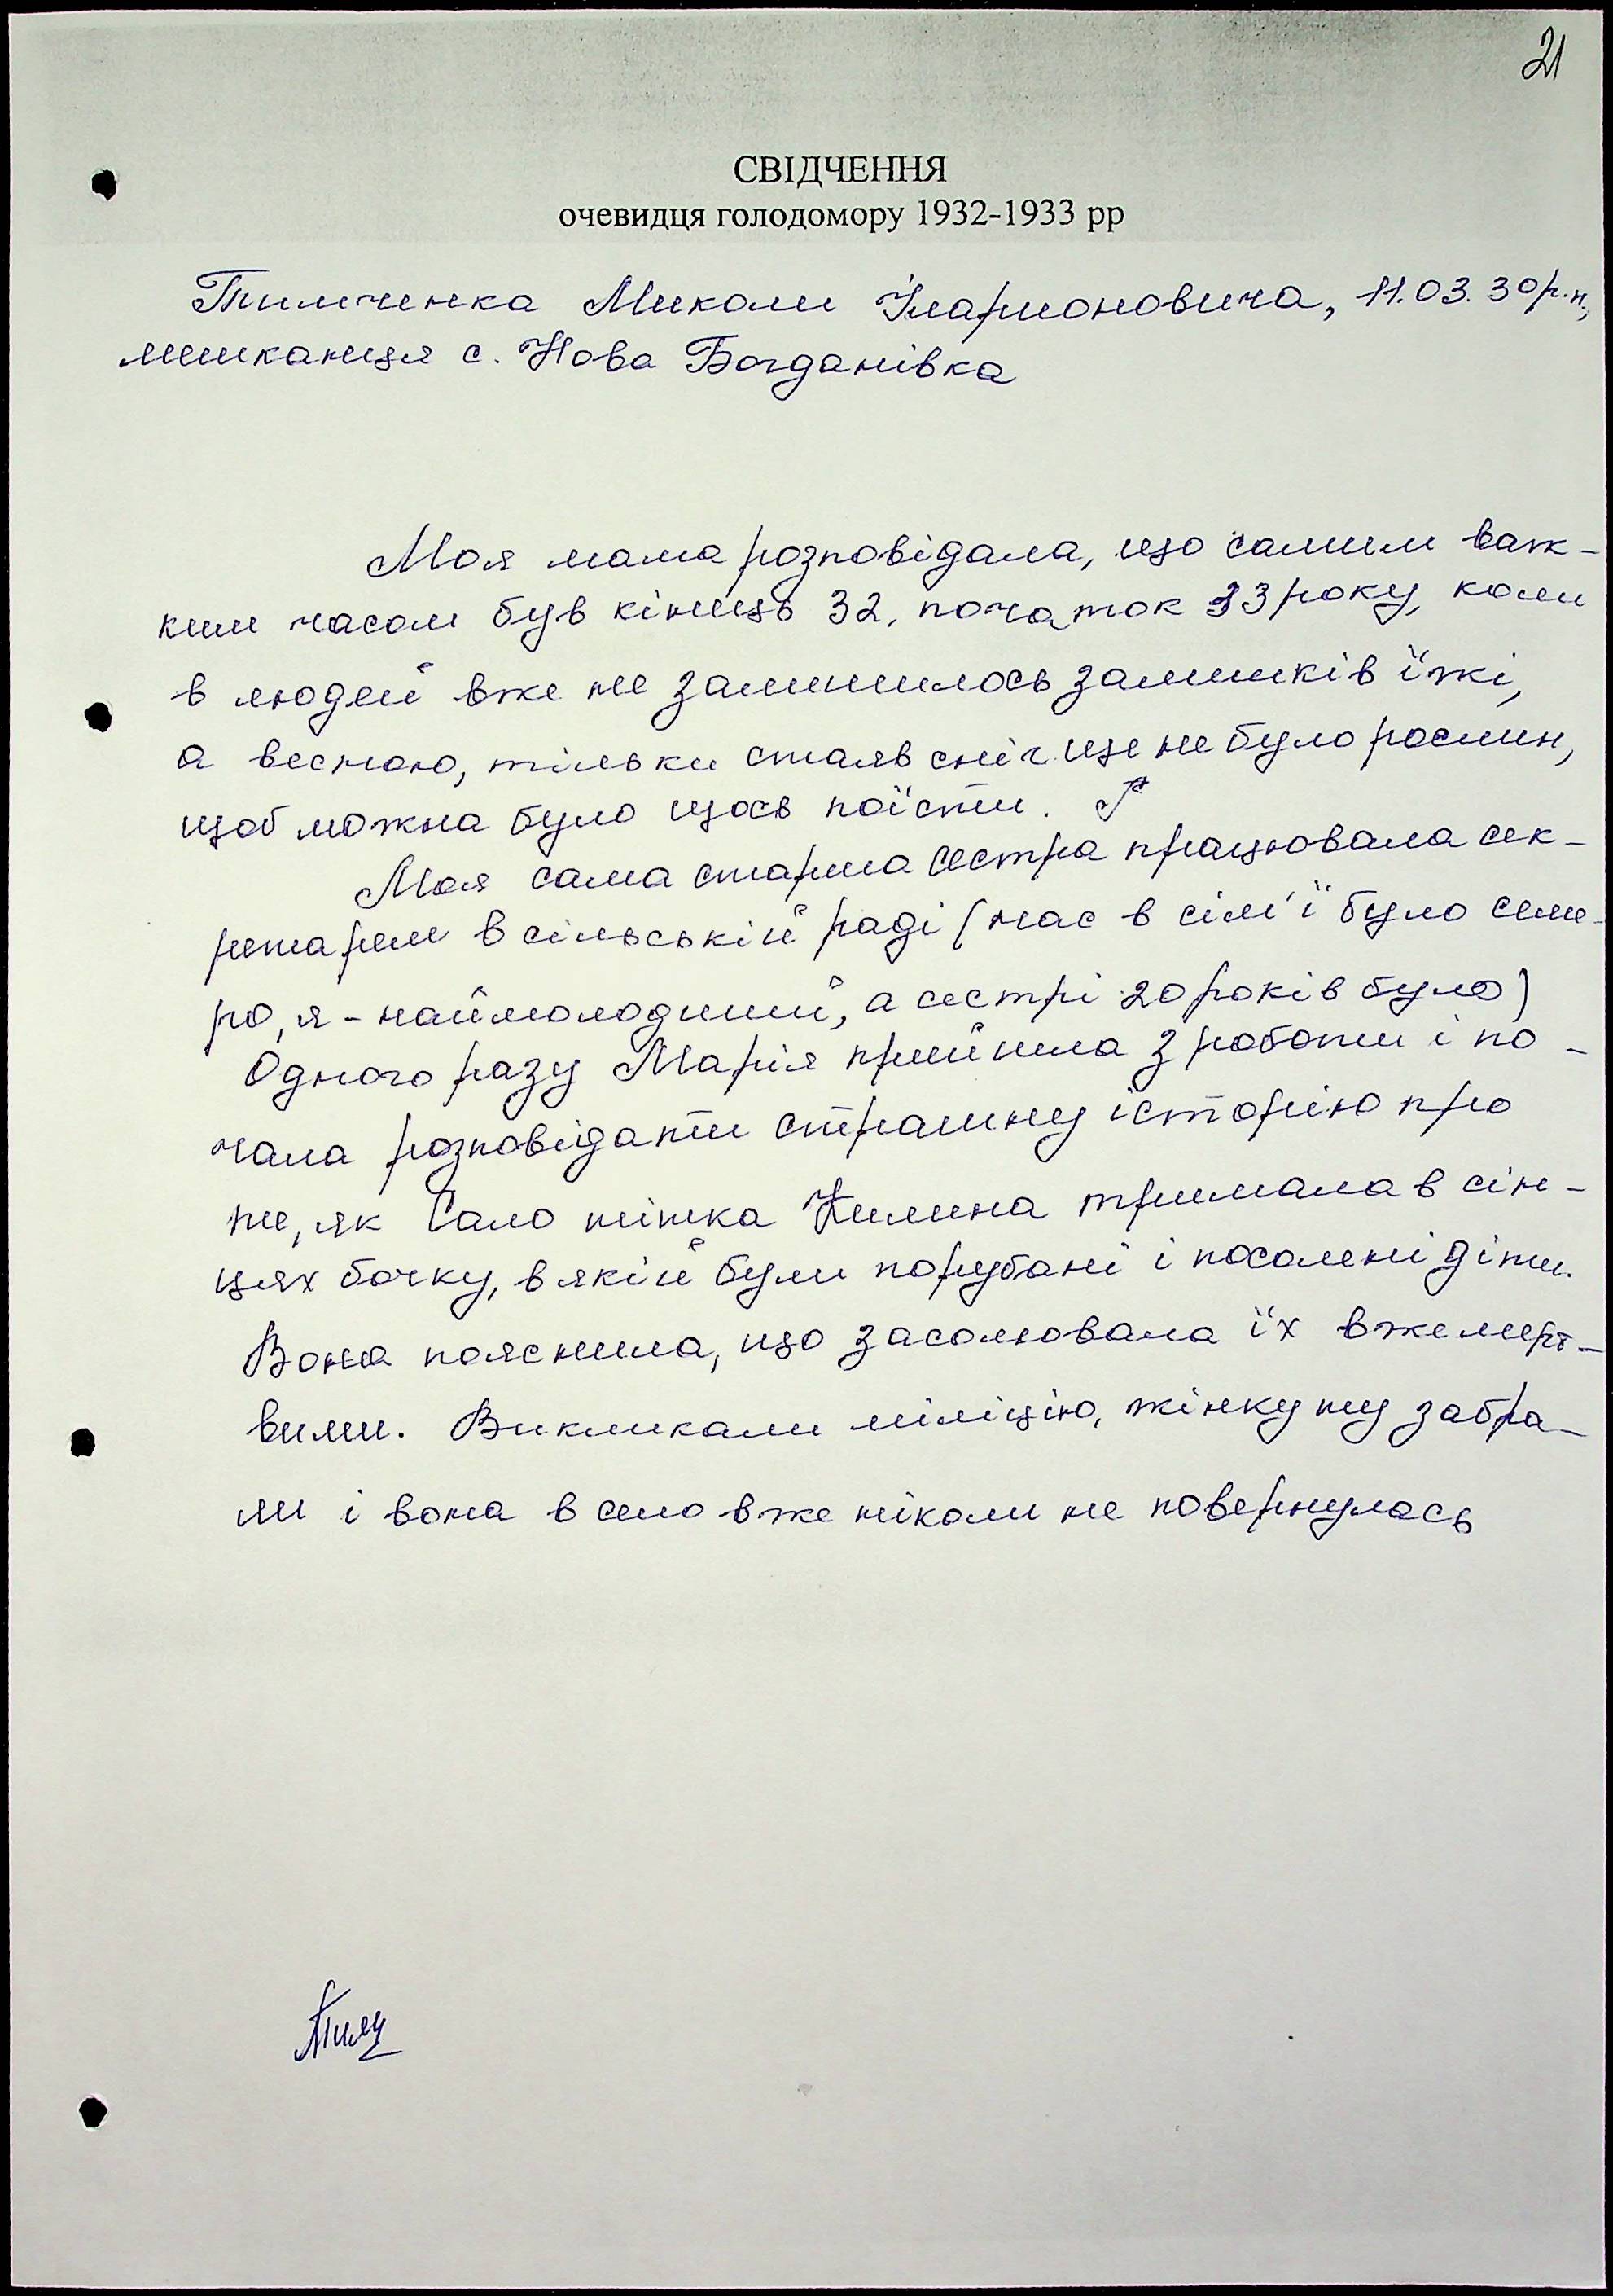 21
СВІДЧЕННЯ
очевидця голодомору 1932-1933 рр
Тимченка Миколи Іларионовича, 11.03.30р.н.,
мешканця с. Нова Богданівка
Моя мама розповідала, що самим важ-
ким часом був кінець 32, початок 33 року, коли
в людей вже не залишилось залишків їжі,
а весною, тільки стаяв сніг ще не було рослин,
щоб можна було щось поїсти.
Моя сама старша сестра працювала сек-
ретарем в сільській раді (нас в сім'ї було семе-
ро, я - наймолодший, а сестрі 20 років було)
Одного разу Марія прийшла з роботи і по-
чала розповідати страшну історію про
те, як Сало тітка Килина тримала в сін-
цях бочку, в якій були порубані і посолені діти.
Вона пояснила, що засолювала їх вже мерт-
вими. Викликали міліцію, жінку ту забра-
ли і вона в село вже ніколи не повернулась